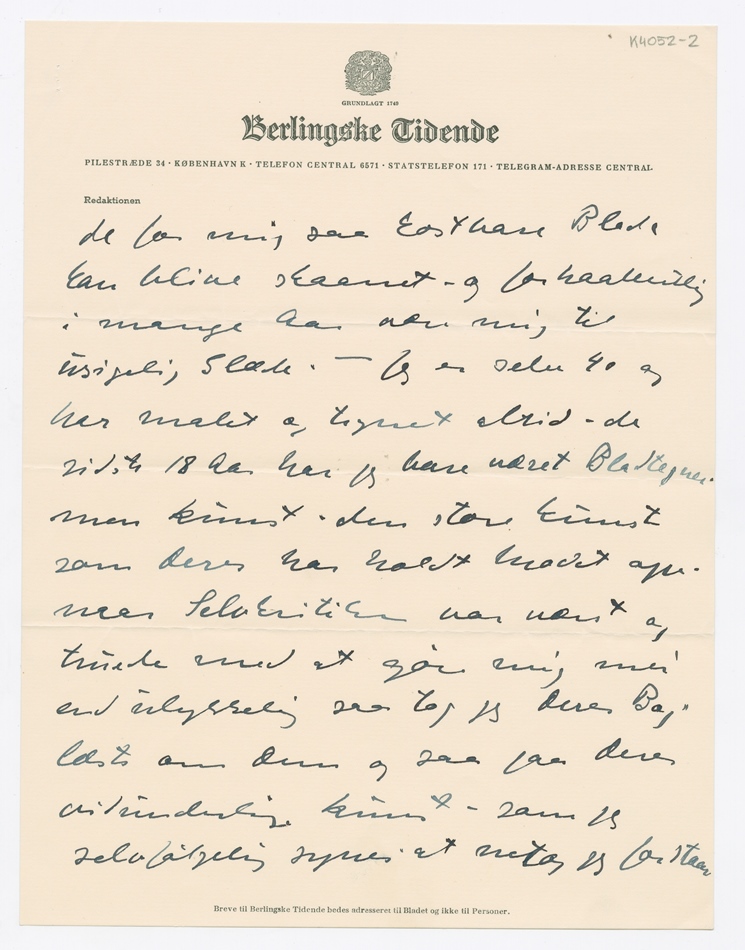 K4052-2
GRUNDLAGT 1749
Berlingske Tidende
PILESTRÆDE 34 · KØBENHAVN K · TELEFON CENTRAL 6571 · STATSTELEFON 171 · TELEGRAM-ADRESSE CENTRAL
Redaktionen
de for mig saa kostbare Blade
kan blive skaanet - og forhaabentlig
i mange Aar være mig til
usigelig Glæde. — Jeg er selv 40 og
har malet og tegnet altid - de
sidste 18 Aar har jeg bare været Bladtegner.
men Kunst - den store Kunst
som Deres har holdt Modet oppe.
naar Selvkritiken var værst og
truede med at gøre mig
end ulykkelig saa tog jeg Deres Bog.
læste om Dem og saa paa Deres
vidunderlige Kunst - som jeg
selvfølgelig synes at netop jeg forstaar
Breve til Berlingske Tidende bedes adresseret til Bladet og ikke til Personer.